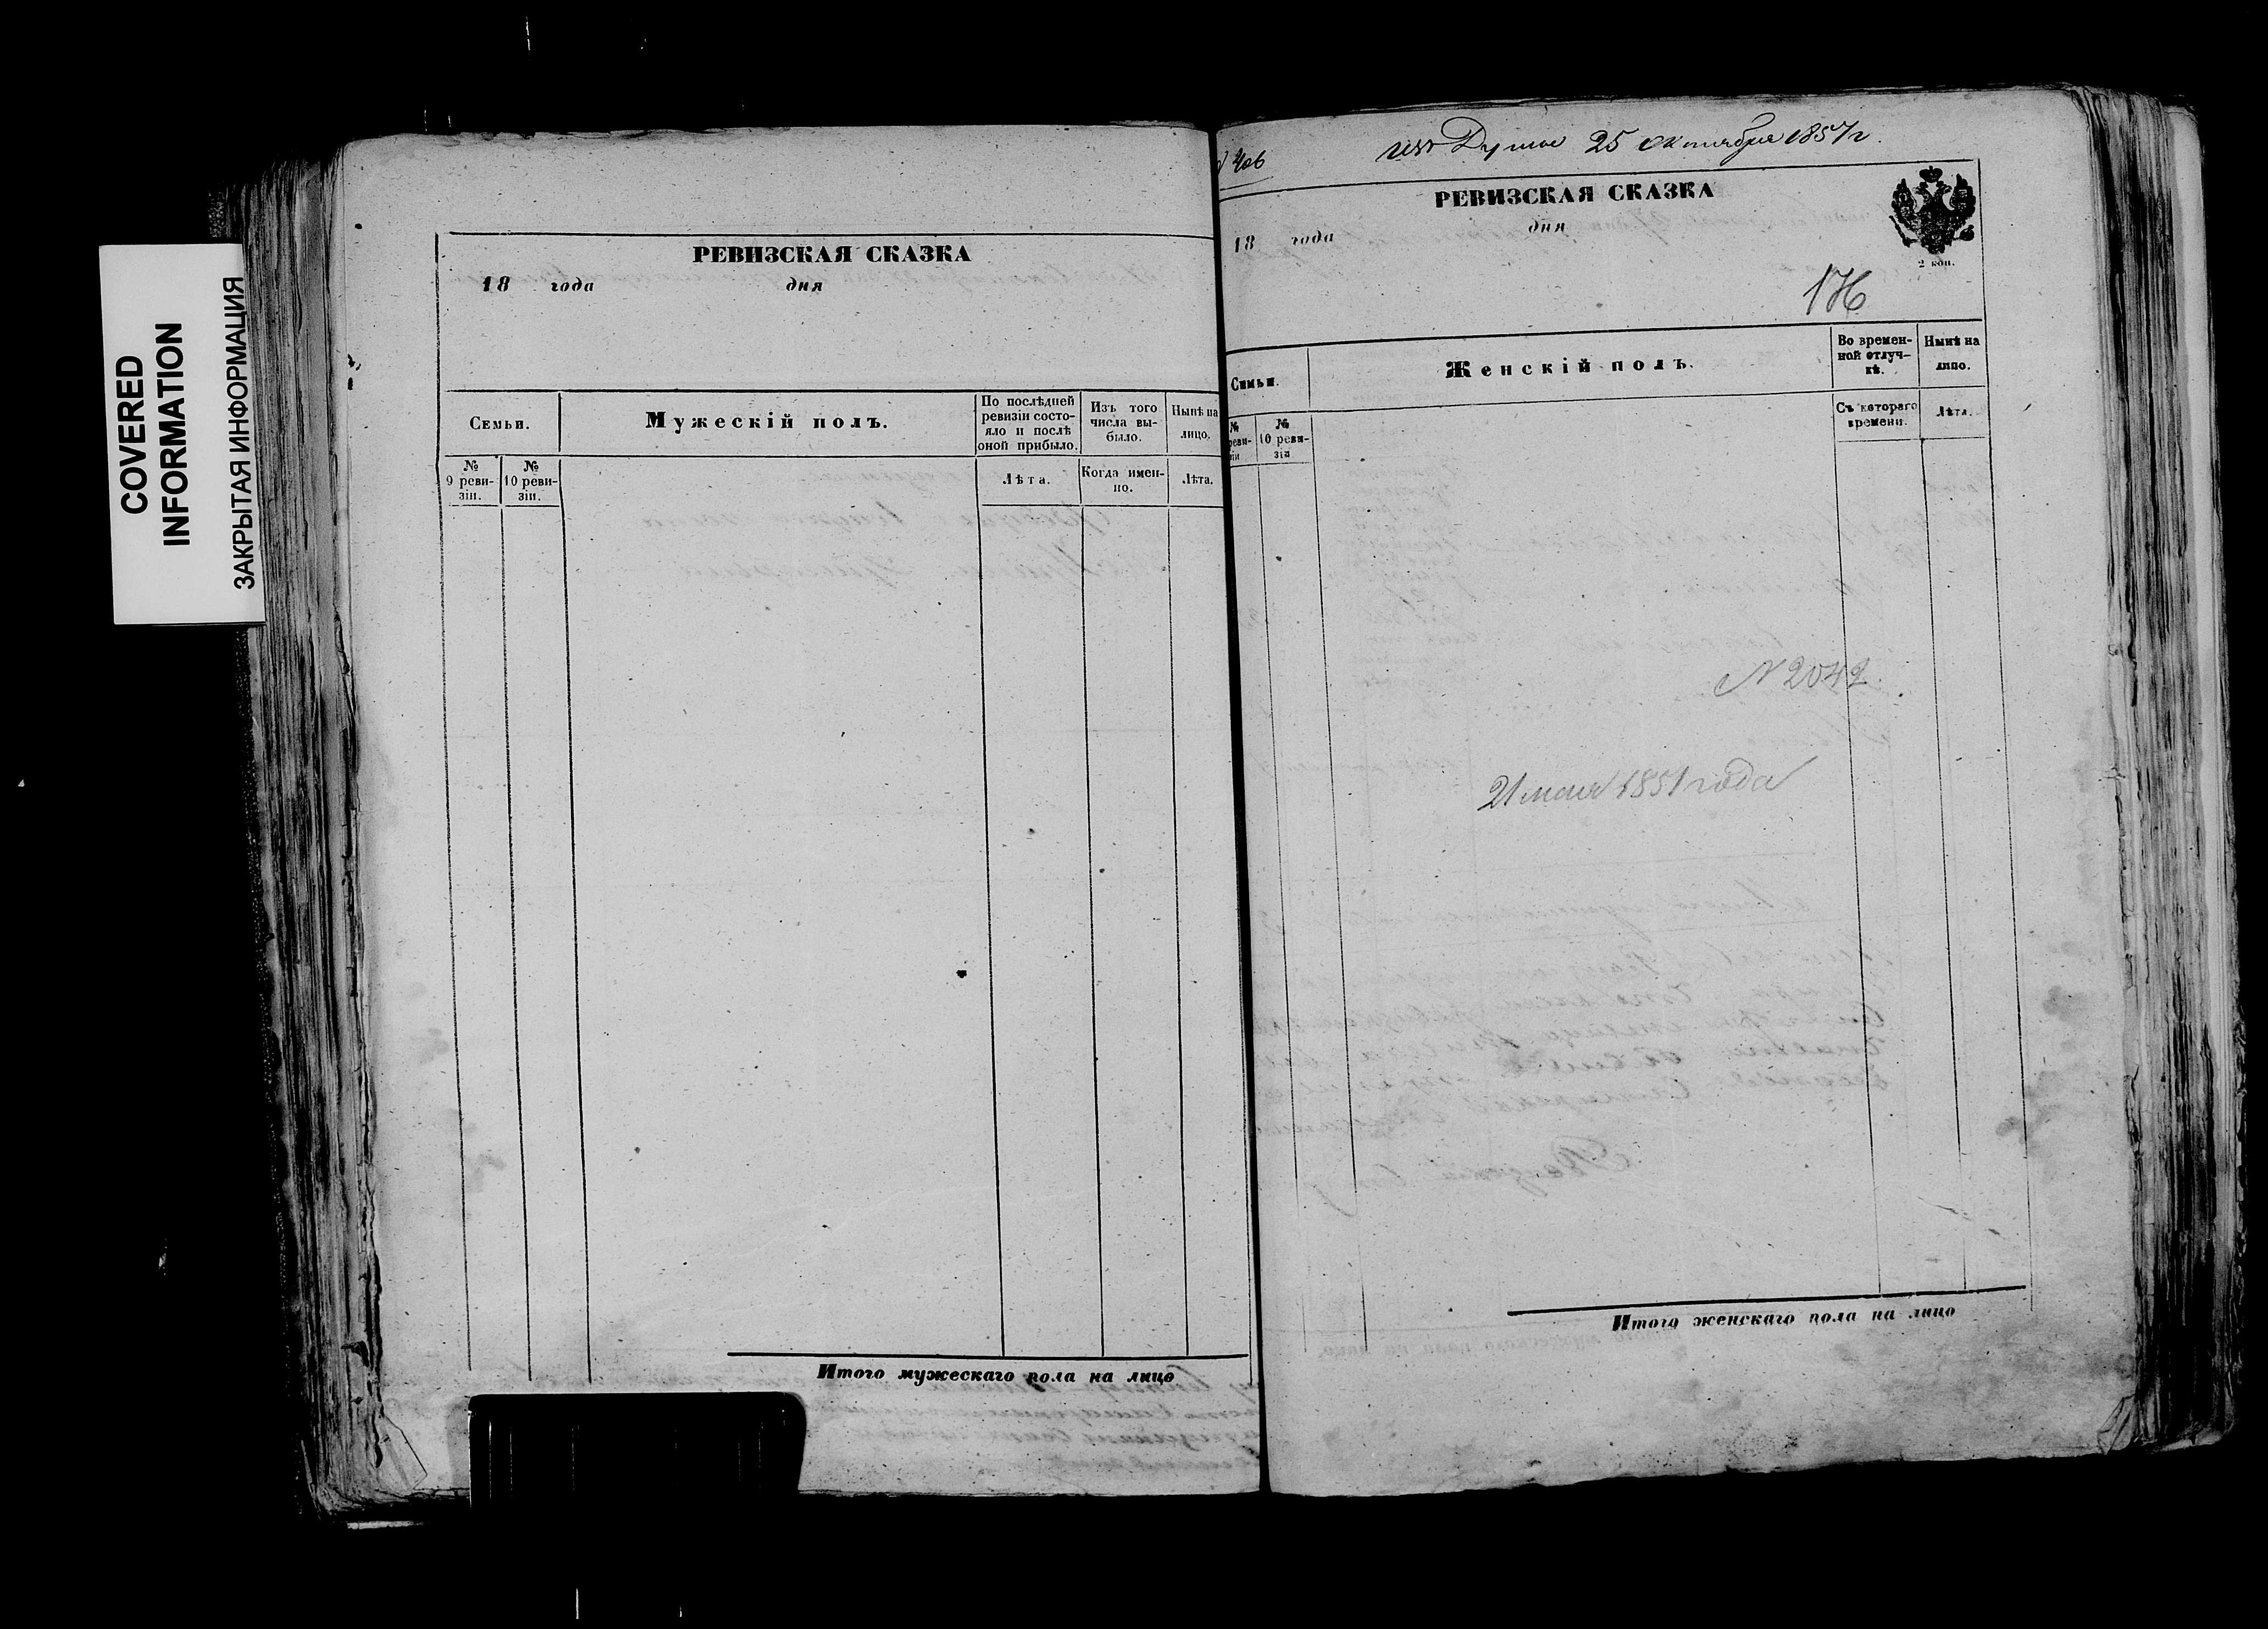 COVERED
INFORMATION
ЗАКРЫТАЯ ИНФОРМАЦИЯ
РЕВИЗСКАЯ СКАЗКА
18 года дня
Семьи.
Мужескій полъ.
По послѣдней
ревизіи состо-
яло и послѣ
оной прибыло.
Изъ того
числа вы-
было.
Нынѣ на
лицо.
№
9 реви-
зіи.
№
10 реви-
зіи.
Лѣта.
Когда имен-
но.
Лѣта.
Итого мужескаго пола на лицо
406
Думы 25 октября 1857 г.
РЕВИЗСКАЯ СКАЗКА
18 года дня
2 коп.
176
Семьи.
Женскій полъ.
Во времен-
ной отлуч-
кѣ.
Нынѣ на
лицо.
№
реви-
зіи
№
10 реви-
зіи
Съ котораго
времени.
Лѣта.
N 2042.
21 мая 1851 года
Итого женскаго пола на лицо